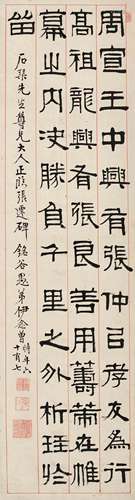 周宣王中興有張仲㠯孝友為行
高祖龍興有張良善用籌策在帷
幕之內決勝負千里之外析珪於
留
石渠先生尊兄大人正臨張遷碑 銘谷愚弟伊念曾時年六
十有七